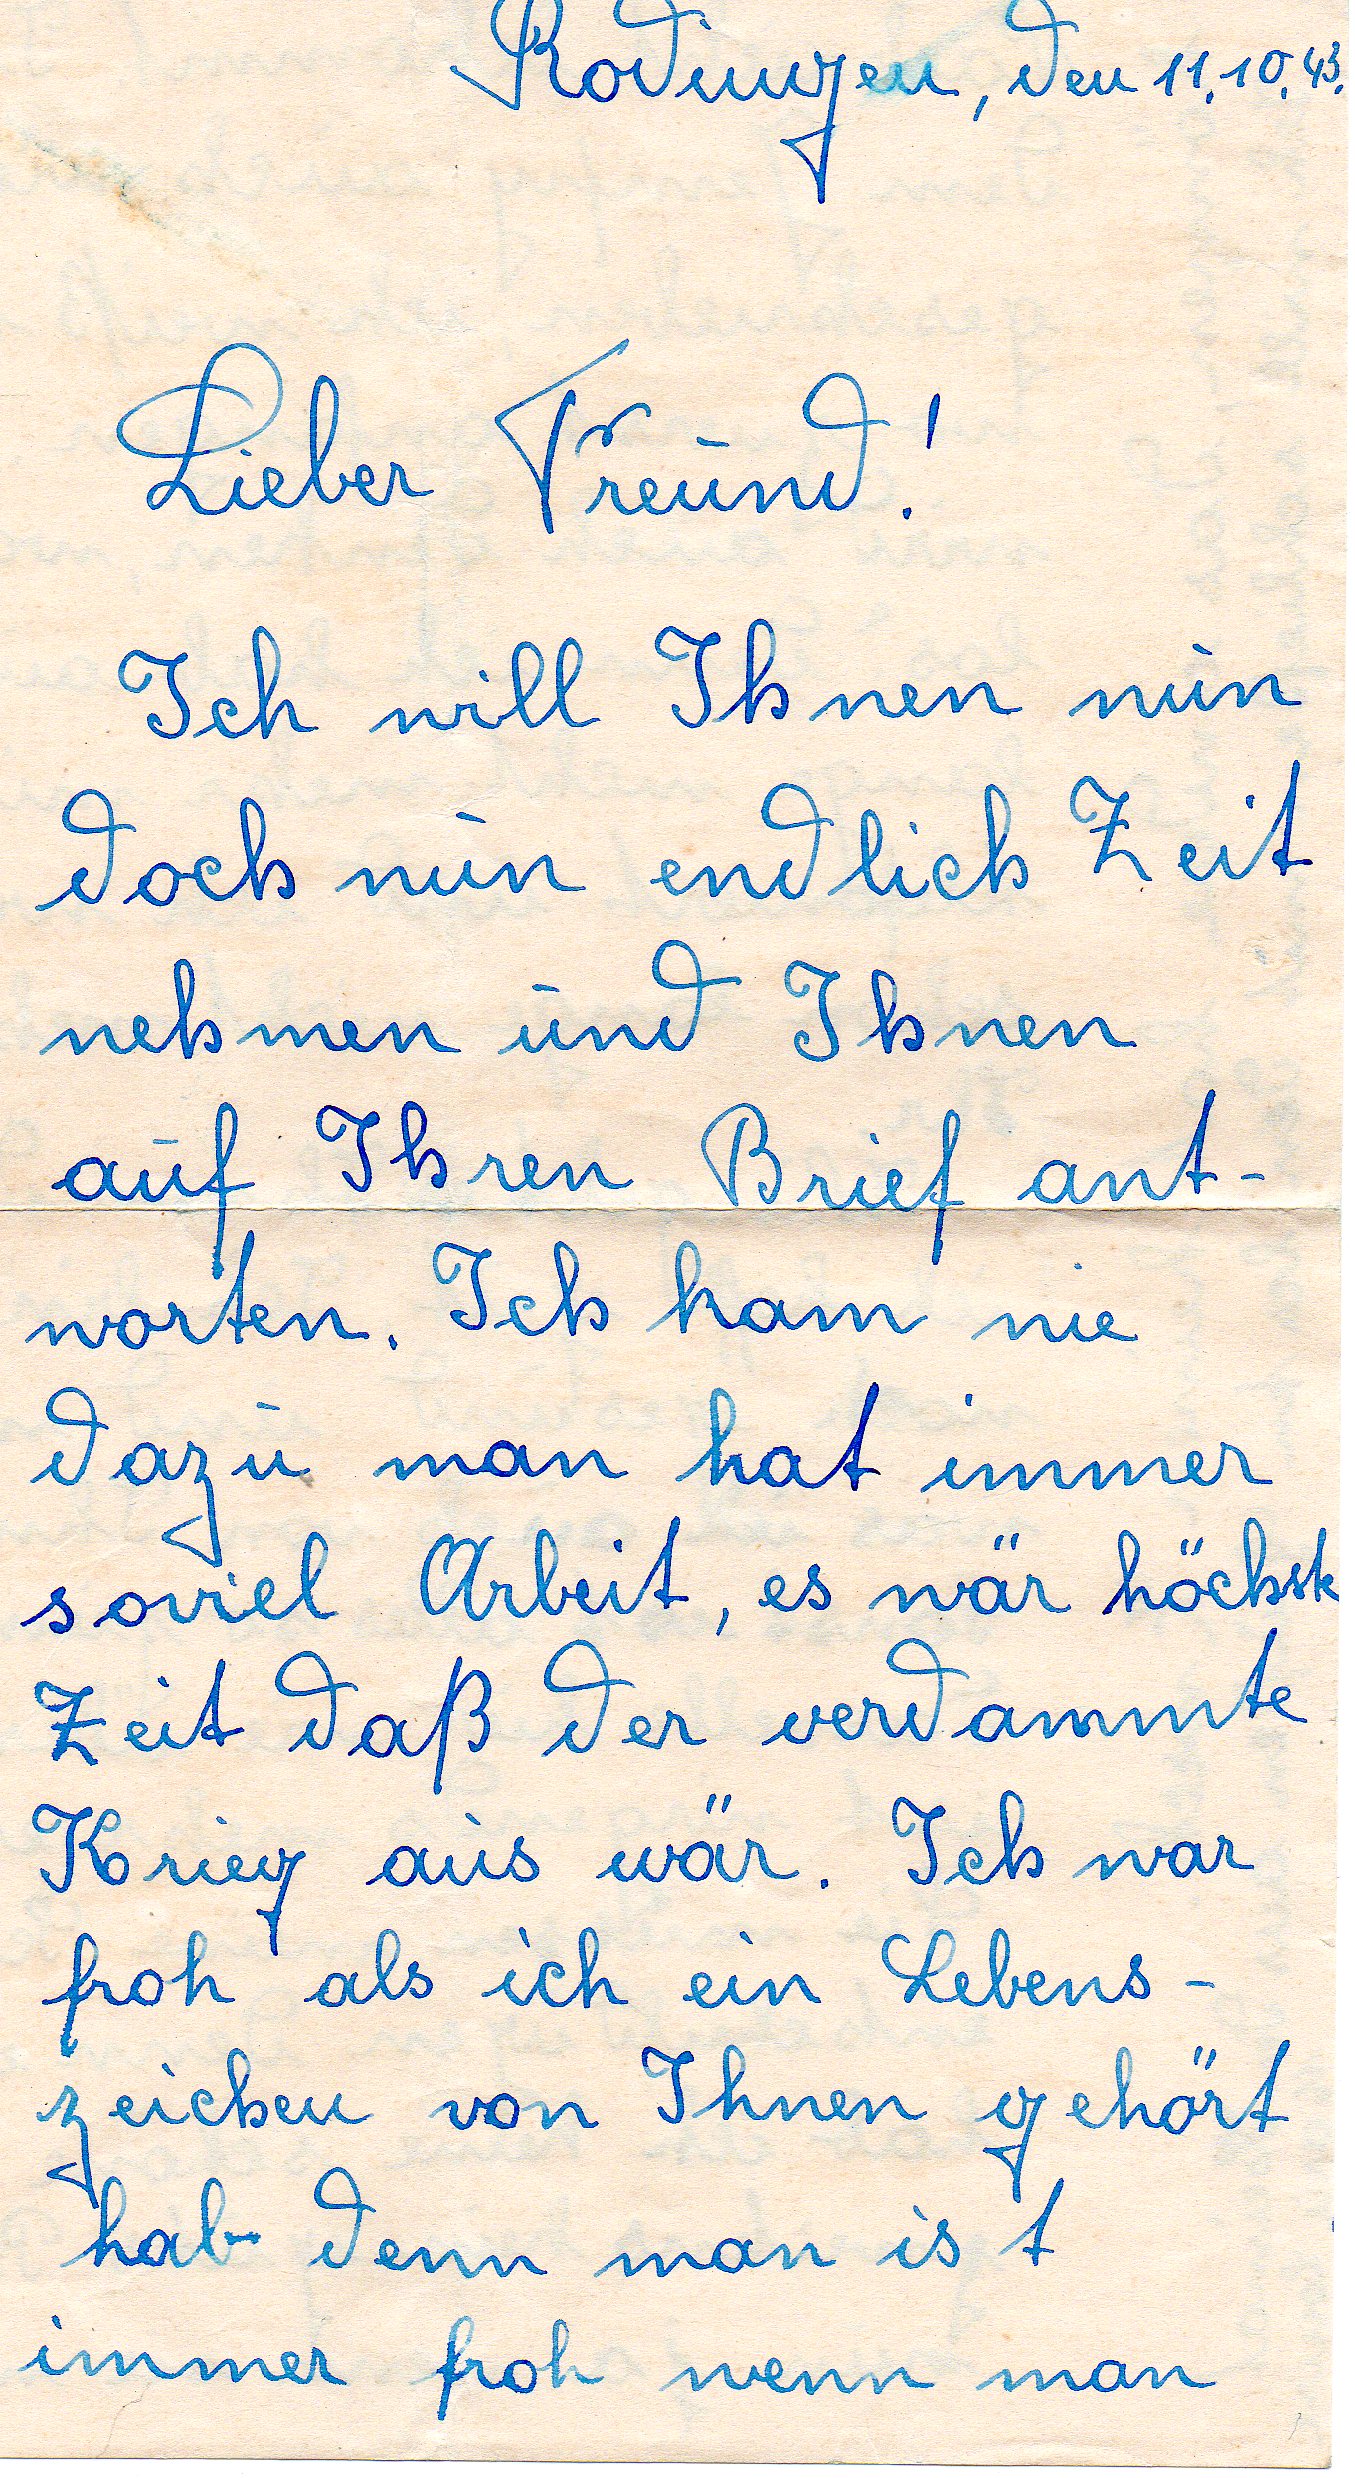 Rodingen, den 11.10.43.
Lieber Freund!
Ich will Ihnen nun
doch nun endlich Zeit
nehmen und Ihnen
auf Ihren Brief ant-
worten. Ich kam nie
dazu man hat immer
soviel Arbeit, es wär höchste
Zeit daß der verdammte
Krieg aus wär. Ich war
froh als ich ein Lebens-
zeichen von Ihnen gehört
hab denn man ist
immer froh wenn man